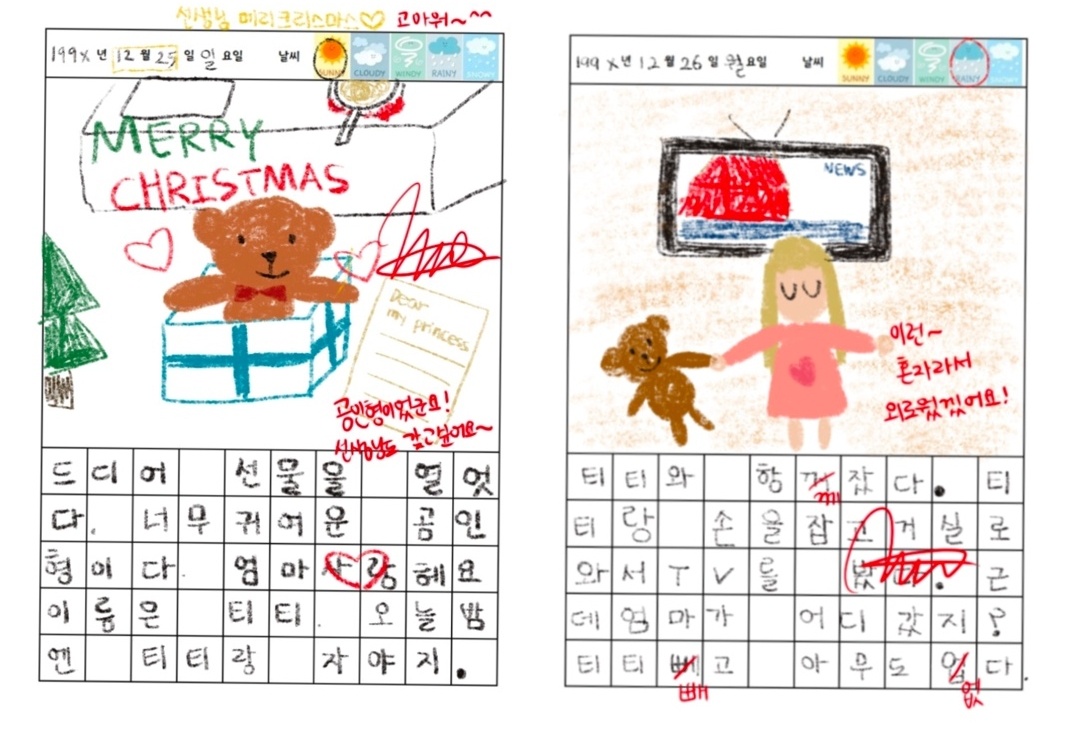 선생님 메리크리스마스♡ 고마워~^^
199X년 12월 25일 일요일 날씨 SUNNY CLOUDY WINDY RAINY SNOWY
MERRY
CHRISTMAS
Dear
my princess
곰인형이었군요!
선생님도 갖고싶어요~
드디어 선물을 열엇
다. 너무 귀여운 곰인
형이다. 엄마 사랑헤요
이름은 티티. 오늘밤
엔 티티랑 자야지.
199X년 12월 26일 월요일 날씨 SUNNY CLOUDY WINDY RAINY SNOWY
NEWS
이런~
혼자라서
외로웠겠어요!
티티와 항 잤다. 티
께
티랑 손을 잡고 거실로
와서 TV를 . 근
데 엄마가 어디 갔지?
티티 빼고 아무도 업다.
빼 없